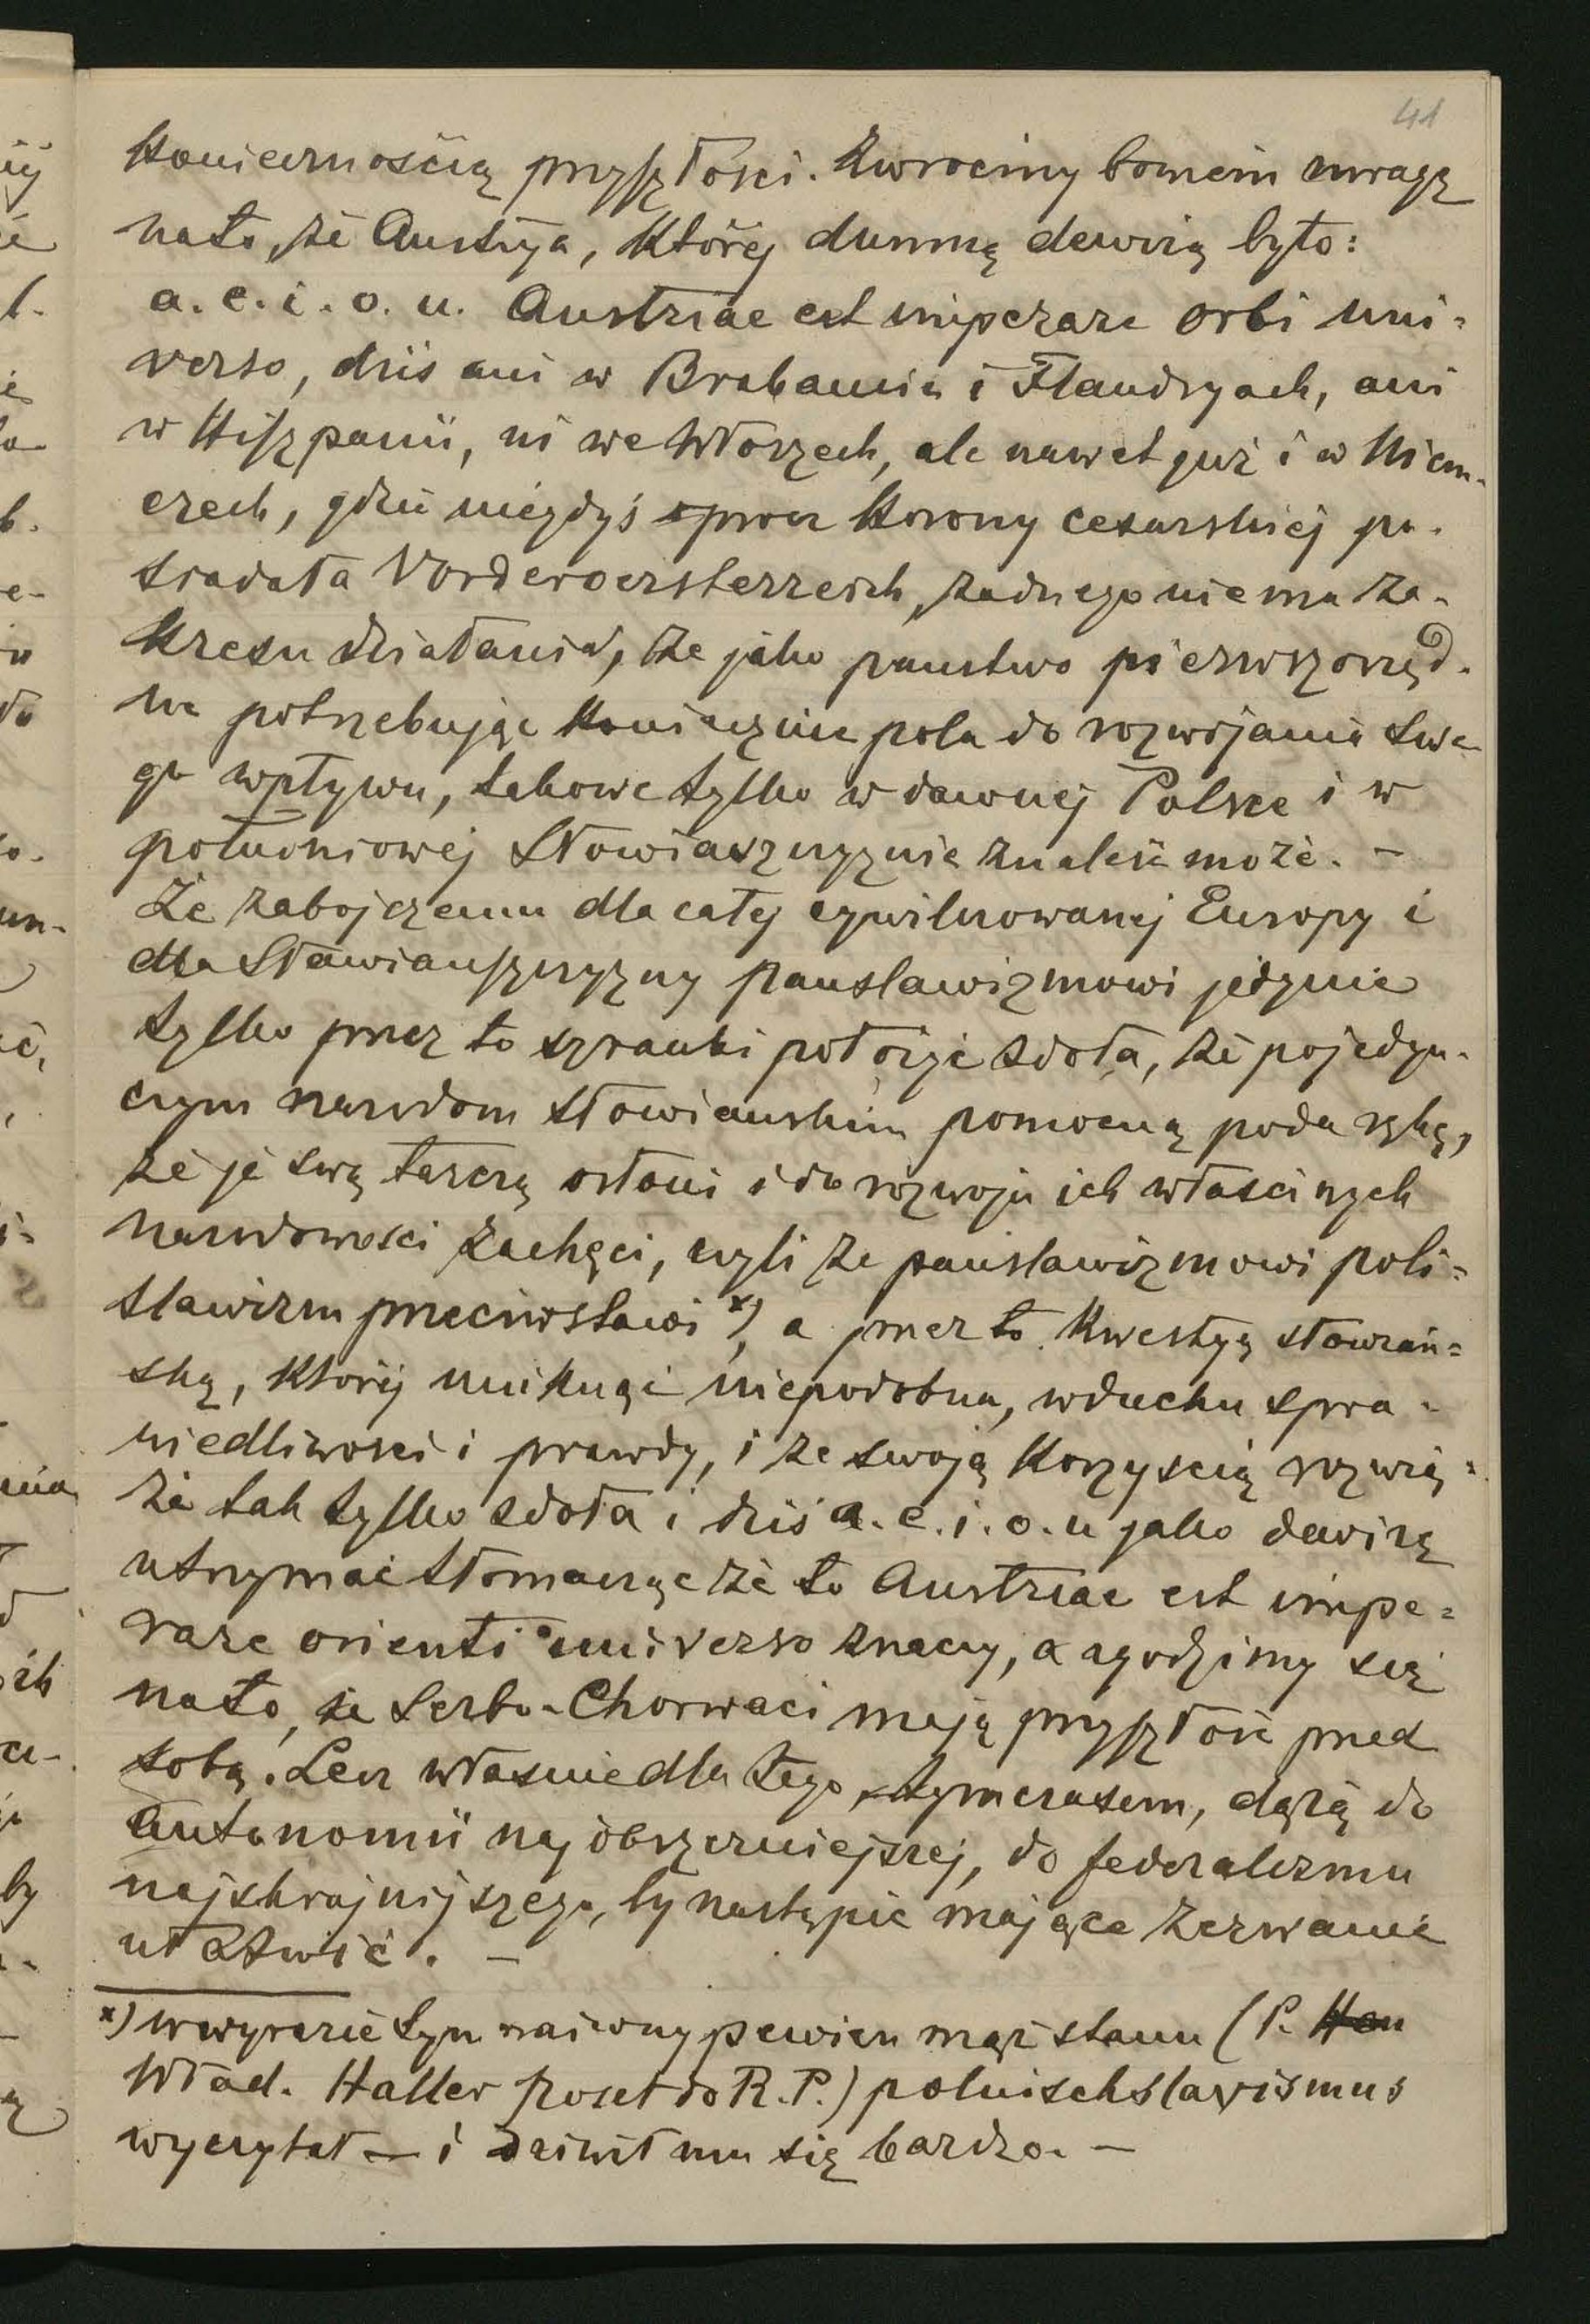 41
koniecznością przyszłości. Zwrócimy bowiem uwagę
na to, że Austrya, której dumną dewizą było:
a. e. i. o. u. Austriae est imperare orbi uni=
verso, dziś ani w Brabancie i Flandryach, ani
w Hiszpanii, ni we Włoszech, ale nawet już i w Niem-
czech, gdzie niegdyś oprócz korony cesarskiej po-
siadała Vorderoesterreich, żadnego nie ma za-
kresu działania, że jako państwo pierwszorzęd-
ne potrzebując koniecznie pola do rozwijania swe-
go wpływu, takowe tylko w dawnej Polsce i w
południowej Słowiańszczyznie znaleść może. —
Że zabójczemu dla całej cywilizowanej Europy i
dla Sławiańszczyzny panslawizmowi jedynie
tylko przez to szranki położyć zdoła, że pojedyn-
czym narodom słowiańskim pomocną poda rękę,
że je swą tarczą osłoni i do rozwoju ich właściwych
narodowości zachęci, czyli że panslawizmowi poli=
slawizm przeciwstawi x), a przez to kwestyą słowiań=
ską, której uniknąć niepodobna, w duchu spra-
wiedliwości i prawdy, i ze swoją korzyścią rozwią=
że tak tylko zdoła i dziś a. e. i. o. u jako dewizę
utrzymać tłomacząc że to Austriae est impe=
rare orienti universo znaczy, a zgodzimy się
na to, że Serbo-Chorwaci mają przyszłość przed
sobą. Lecz właśnie dla tego, tymczasem, dążą do
autonomii najobszerniejszej, do federalizmu
najskrajniejszego, by nastąpić mające zerwanie
ułatwić. —
x) w wyrazie tym naiwny pewien mąż stanu (P. Hau
Wład. Haller poseł do R. P.) polnischslavismus
wyczytał — i dziwił mu się bardzo. —